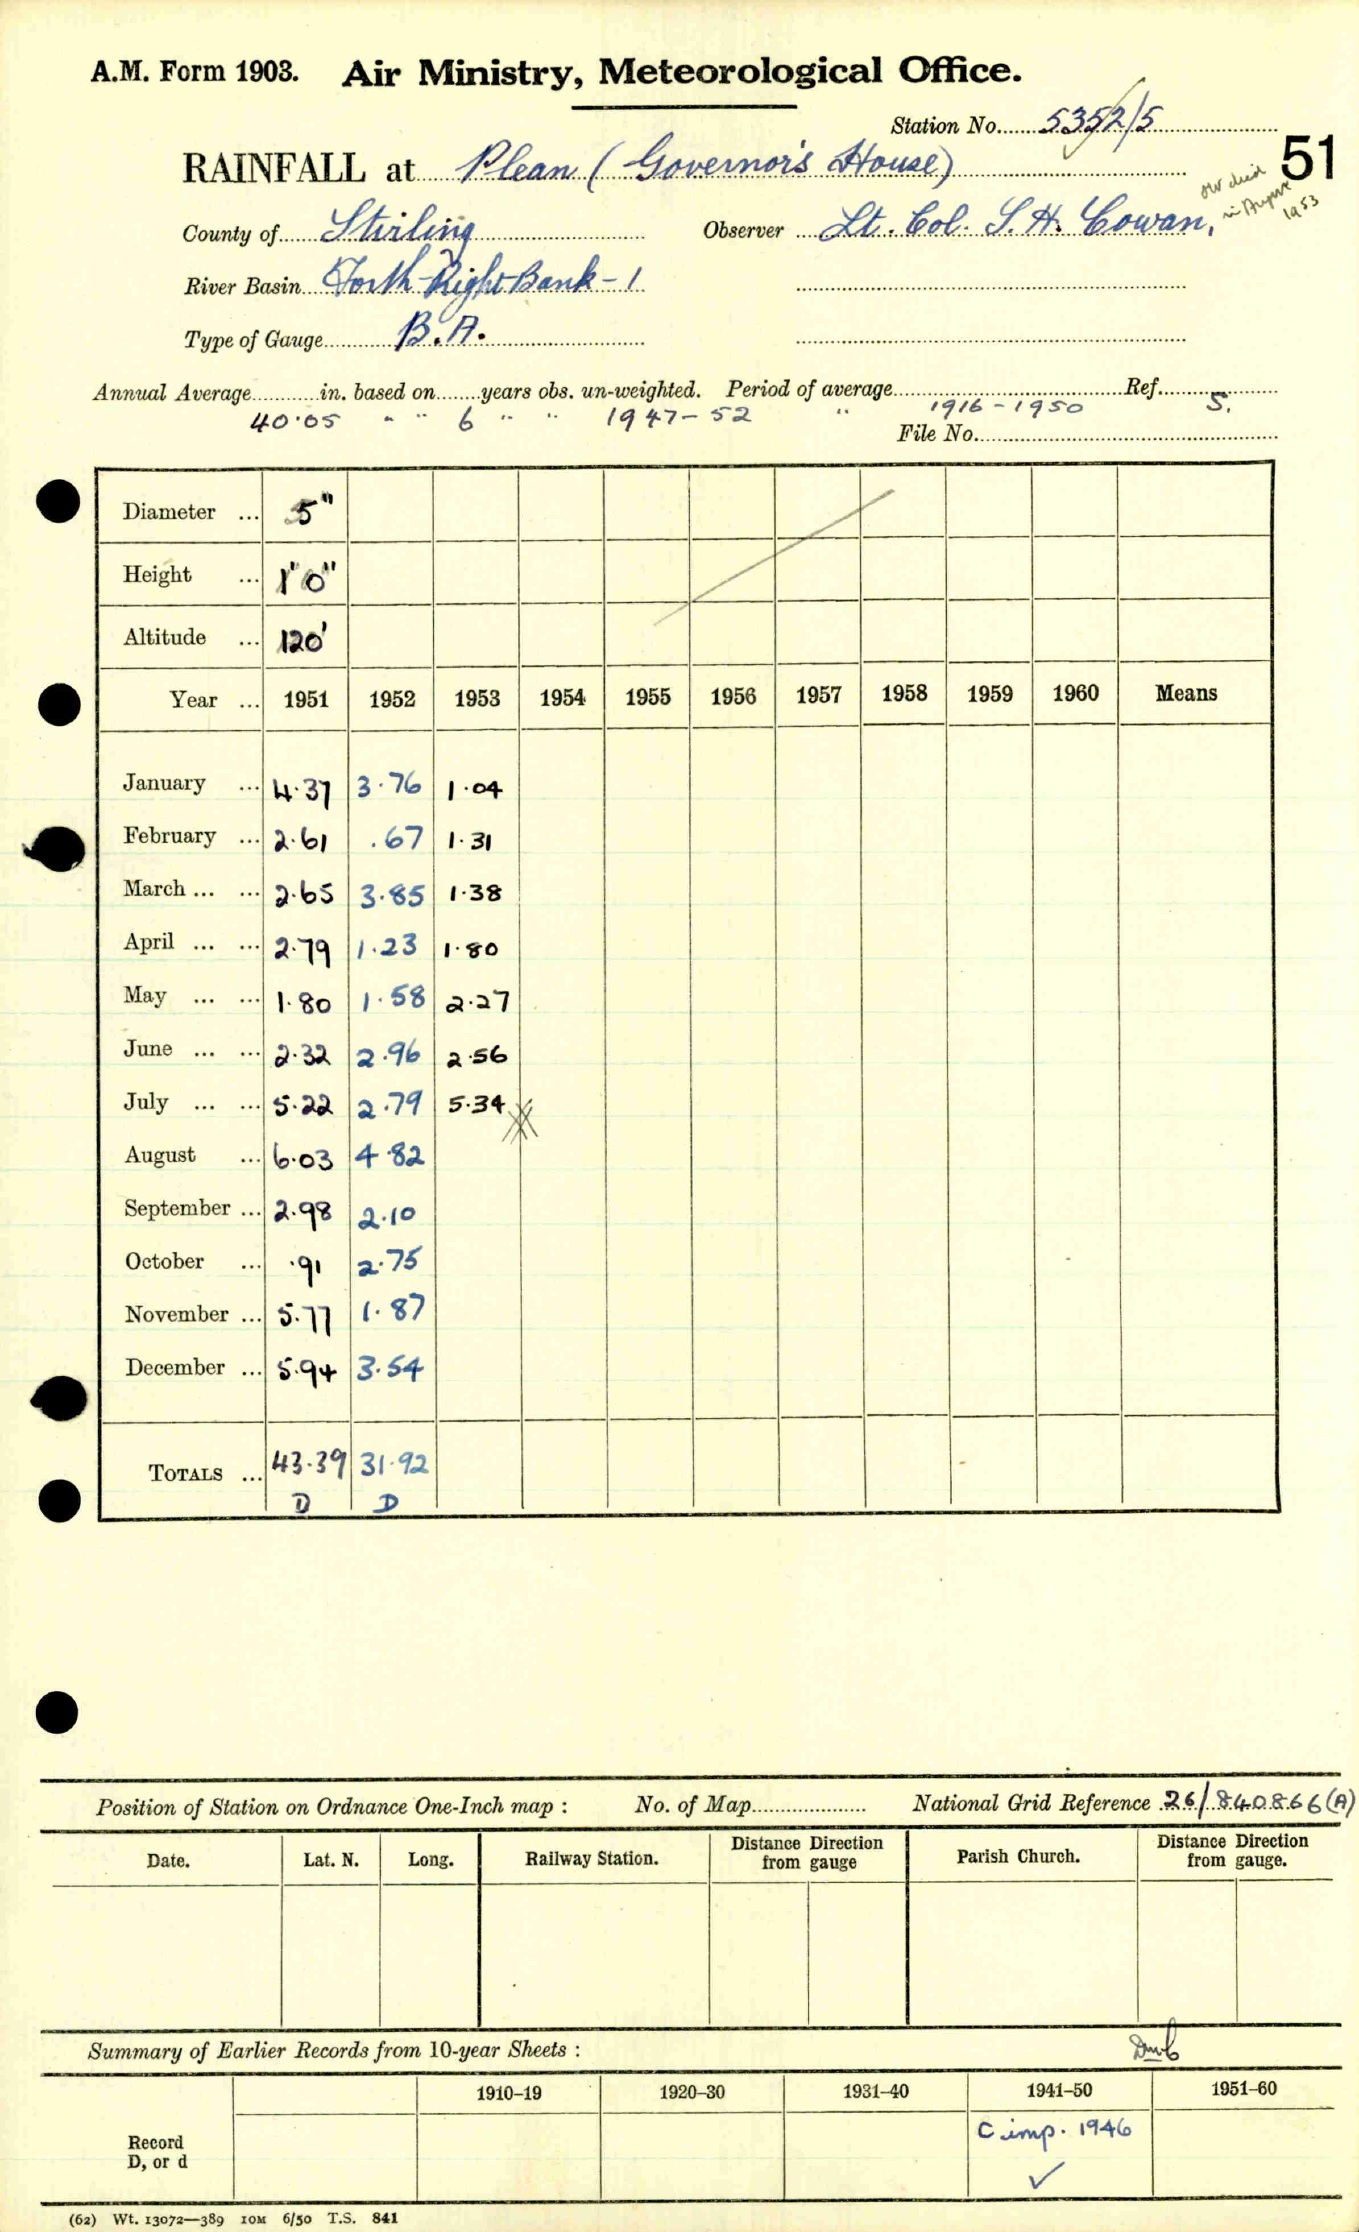 A.M. Form 1903. Air Ministry, Meteorological Office.
Station No. 5352/5
RAINFALL at Plean (Governor's House) 51
died in August 1953
County of Stirling Observer Lt. Col. S. H. Cowan,
River Basin Forth-Right Bank-1
Type of Gauge B.A.
Annual Average in. based on years obs. un-weighted. Period of average Ref.
40.05 " " 6 " " 1947-52 " 1916-1950 S.
File No.
Diameter ... 5"
Height ... 1'0"
Altitude ... 120'
Year ... 1951 1952 1953 1954 1955 1956 1957 1958 1959 1960 Means
January ... 4.37 3.76 1.04
February ... 2.61 .67 1.31
March ... ... 2.65 3.85 1.38
April ... ... 2.79 1.23 1.80
May ... ... 1.80 1.58 2.27
June ... ... 2.32 2.96 2.56
July ... ... 5.22 2.79 5.34
August ... 6.03 4.82
September ... 2.98 2.10
October ... .91 2.75
November ... 5.77 1.87
December ... 5.94 3.54
TOTALS ... 43.39 31.92
D D
Position of Station on Ordnance One-Inch map : No. of Map National Grid Reference 26/840866(A)
Date. Lat. N. Long. Railway Station. Distance Direction from gauge Parish Church. Distance Direction from gauge.
Summary of Earlier Records from 10-year Sheets :
1910-19 1920-30 1931-40 1941-50 1951-60
Record D, or d C imp. 1946
(62) Wt. 13072—389 10M 6/50 T.S. 841